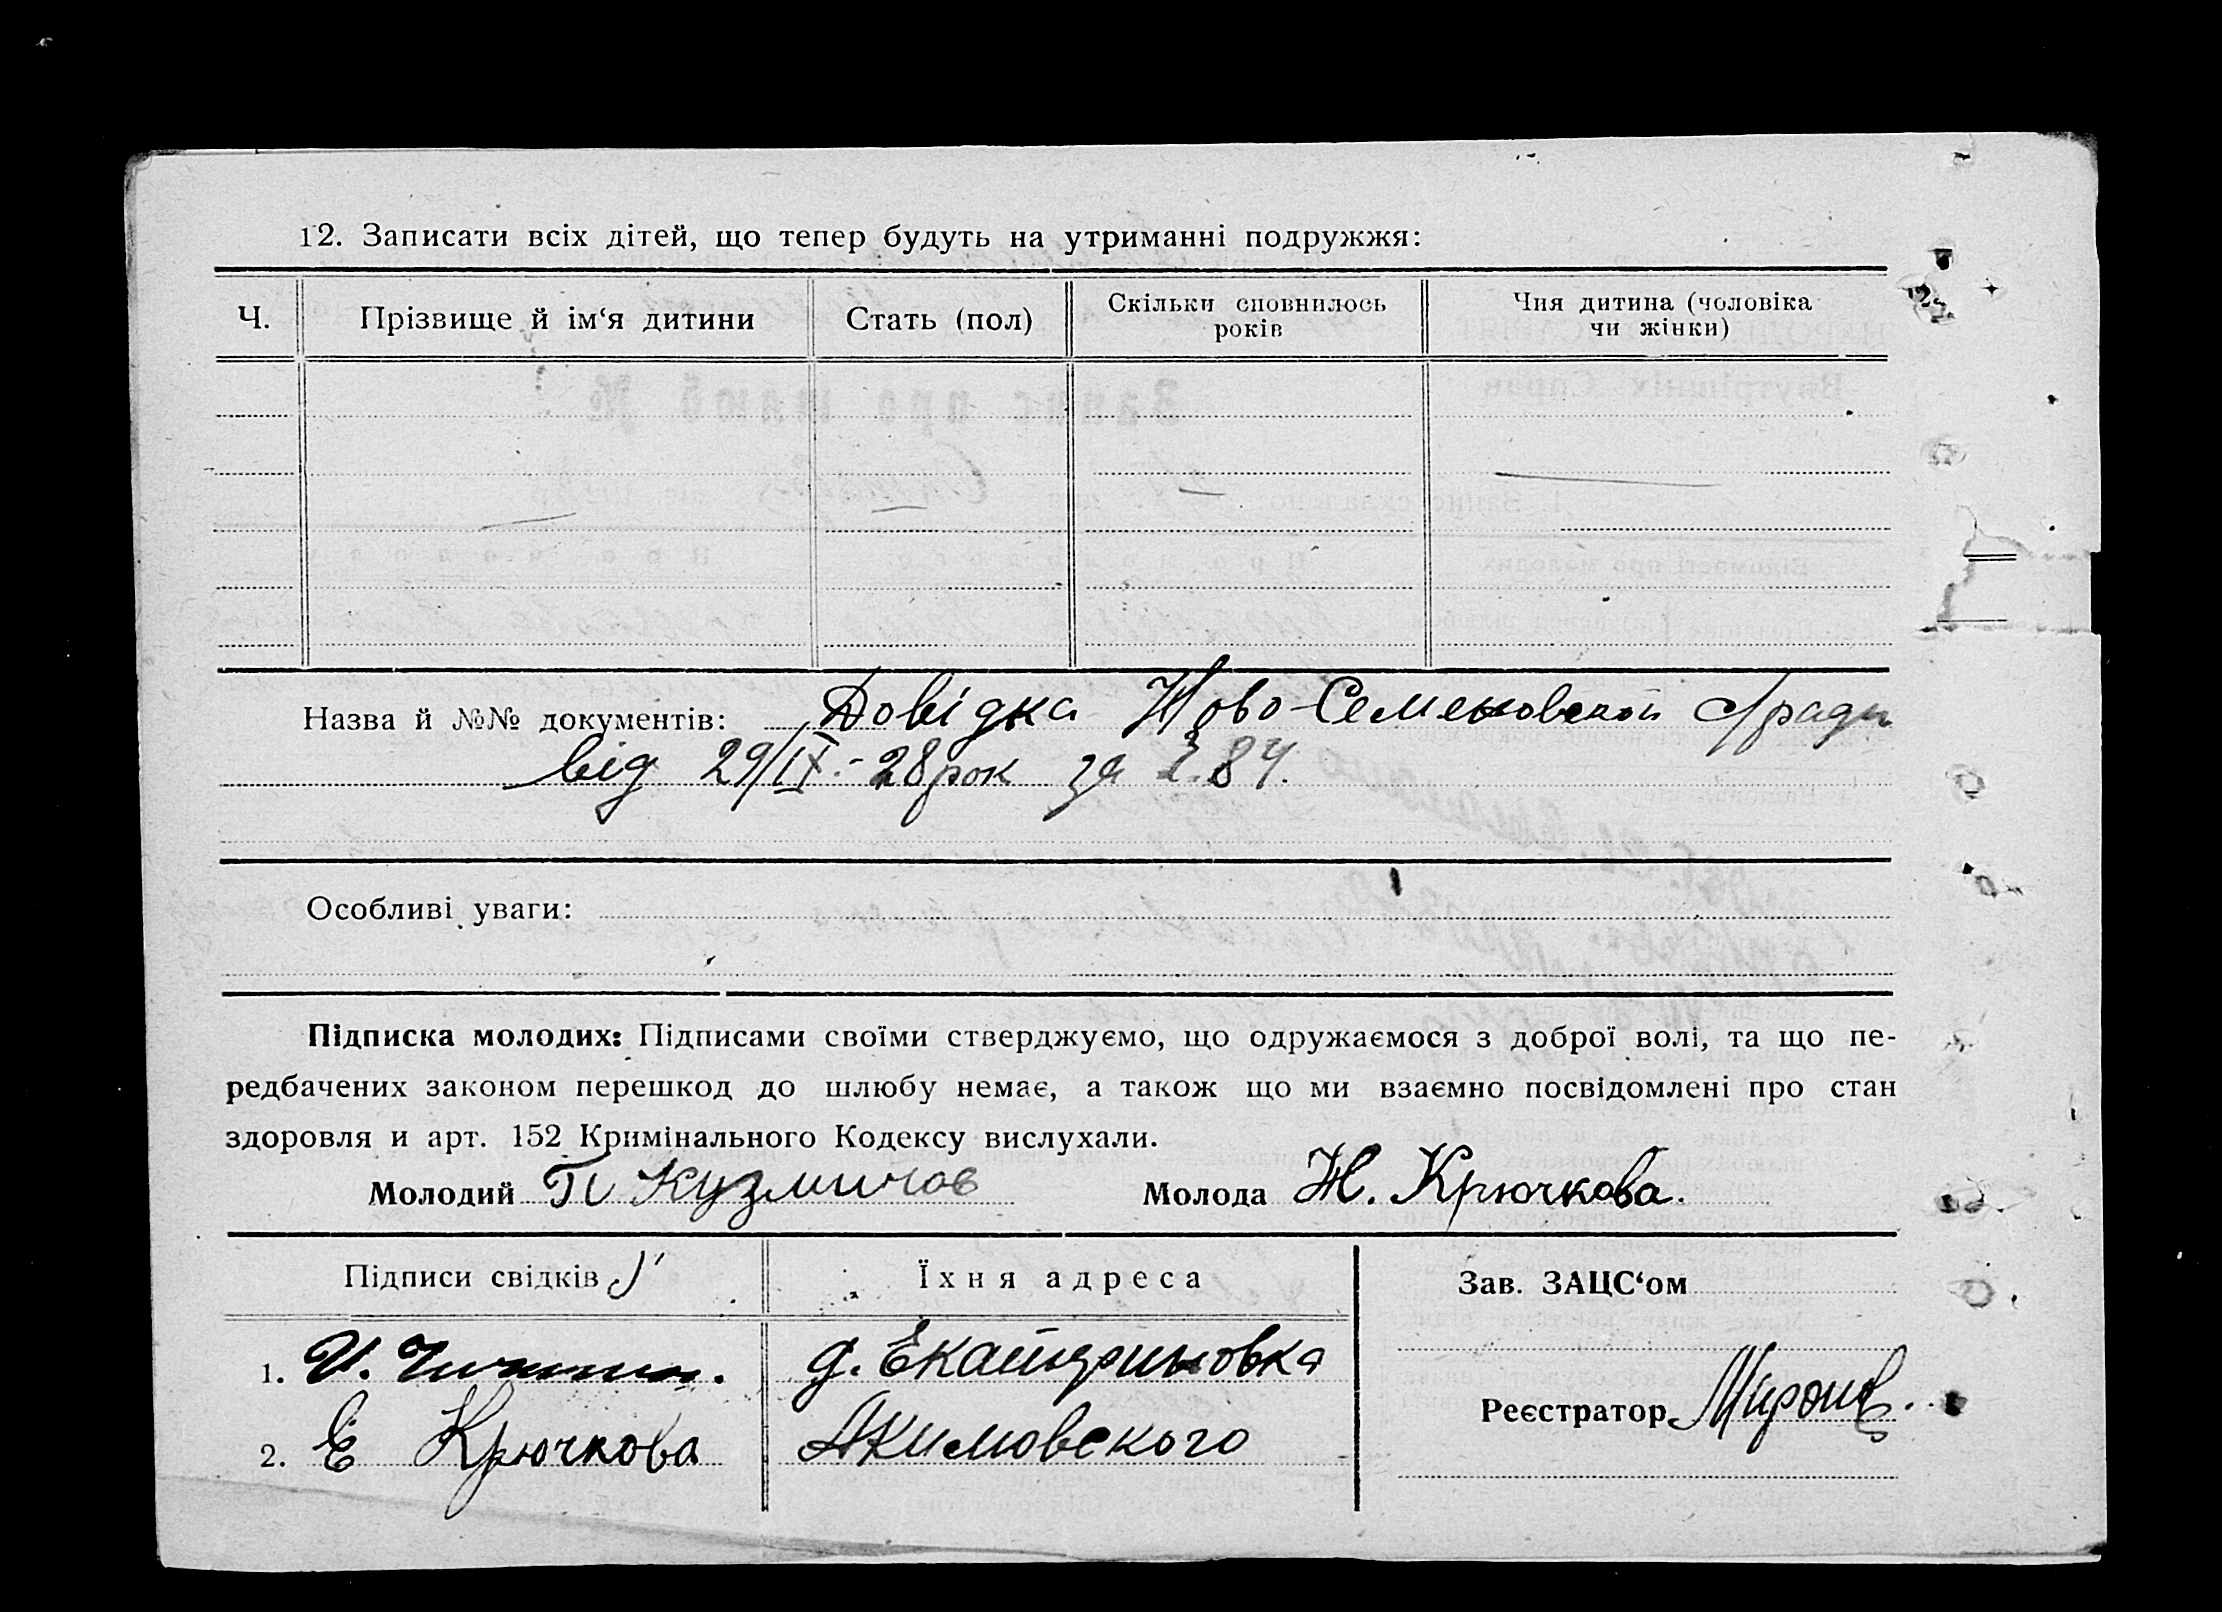 12. Записати всіх дітей, що тепер будуть на утриманні подружжя:
Ч. Прізвище й ім‘я дитини Стать (пол) Скільки сповнилось років Чия дитина (чоловіка чи жінки)
Назва й №№ документів: Довідка Ново-Семеновской с/ради
від 29/IX.-28 рок за № 84.
Особливі уваги:
Підписка молодих: Підписами своїми стверджуємо, що одружаємося з доброї волі, та що пе-
редбачених законом перешкод до шлюбу немає, а також що ми взаємно посвідомлені про стан
здоровля и арт. 152 Кримінального Кодексу вислухали.
Молодий П Кузмичов Молода Н. Крючкова.
Підписи свідків Їхня адреса Зав. ЗАЦС‘ом
1. И. д. Екатериновка
Реєстратор
2. Е Крючкова Акимовского